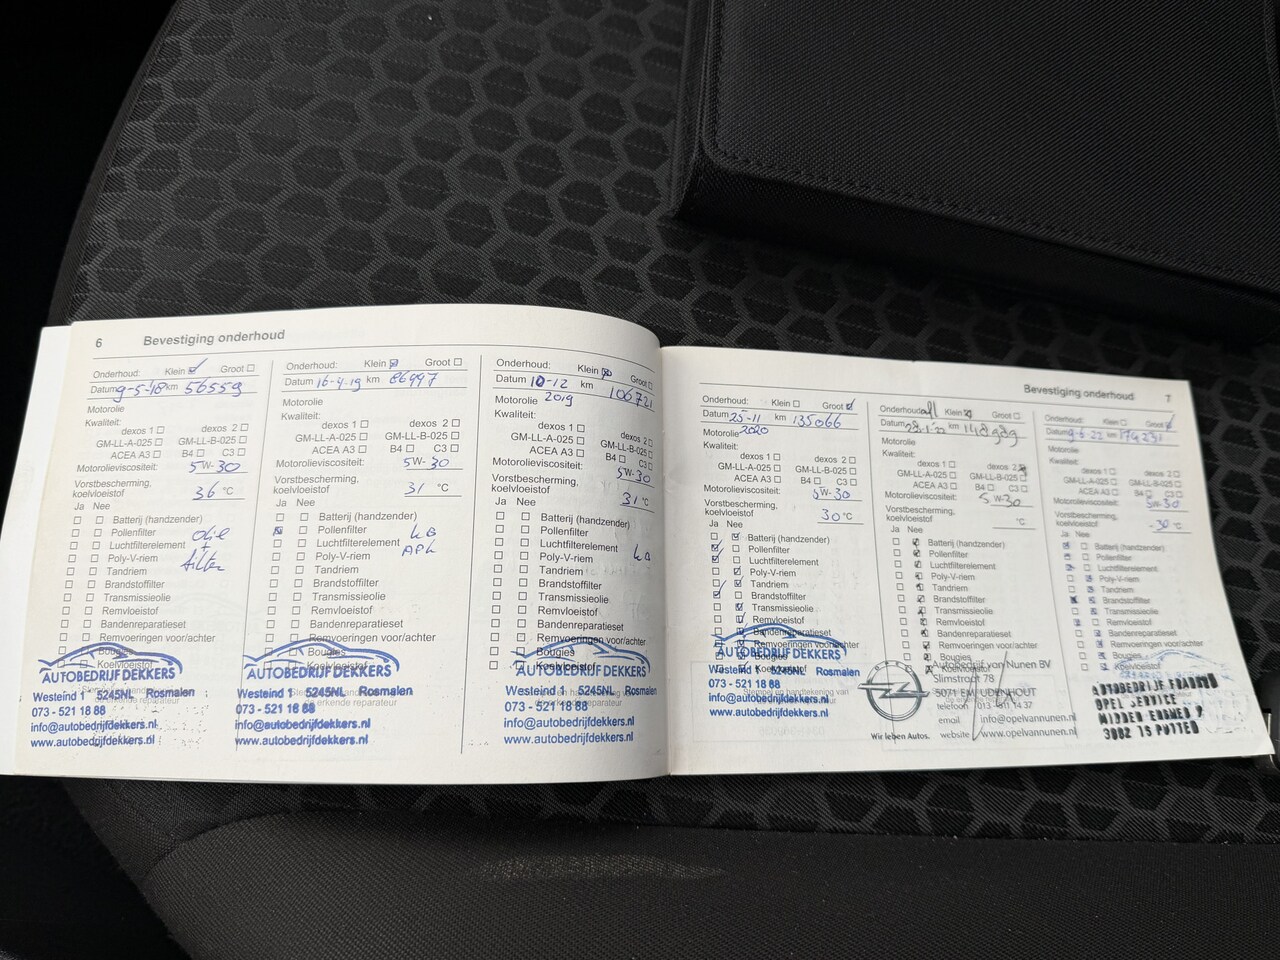 6 Bevestiging onderhoud
Onderhoud: Klein Groot
Datum 9-5-'18 km 56559
Motorolie
Kwaliteit:
dexos 1 dexos 2
GM-LL-A-025 GM-LL-B-025
ACEA A3 B4 C3
Motorolieviscositeit: 5W-30
Vorstbescherming,
koelvloeistof 36 °C
Ja Nee
Batterij (handzender)
Pollenfilter
Luchtfilterelement
Poly-V-riem
Tandriem
Brandstoffilter
Transmissieolie
Remvloeistof
Bandenreparatieset
Remvoeringen voor/achter
Bougies
Koelvloeistof
olie
+
filter
AUTOBEDRIJF DEKKERS
Westeind 1 5245NL Rosmalen
073 - 521 18 88
info@autobedrijfdekkers.nl
www.autobedrijfdekkers.nl
Onderhoud: Klein Groot
Datum 16-4-19 km 86997
Motorolie
Kwaliteit:
dexos 1 dexos 2
GM-LL-A-025 GM-LL-B-025
ACEA A3 B4 C3
Motorolieviscositeit: 5W-30
Vorstbescherming,
koelvloeistof 31 °C
Ja Nee
Batterij (handzender)
Pollenfilter
Luchtfilterelement
Poly-V-riem
Tandriem
Brandstoffilter
Transmissieolie
Remvloeistof
Bandenreparatieset
Remvoeringen voor/achter
Bougies
Koelvloeistof
APK
AUTOBEDRIJF DEKKERS
Westeind 1 5245NL Rosmalen
073 - 521 18 88
info@autobedrijfdekkers.nl
www.autobedrijfdekkers.nl
Onderhoud: Klein Groot
Datum 10-12 km 106721
Motorolie 2019
Kwaliteit:
dexos 1 dexos 2
GM-LL-A-025 GM-LL-B-025
ACEA A3 B4 C3
Motorolieviscositeit: 5W-30
Vorstbescherming,
koelvloeistof 31 °C
Ja Nee
Batterij (handzender)
Pollenfilter
Luchtfilterelement
Poly-V-riem
Tandriem
Brandstoffilter
Transmissieolie
Remvloeistof
Bandenreparatieset
Remvoeringen voor/achter
Bougies
Koelvloeistof
AUTOBEDRIJF DEKKERS
Westeind 1 5245NL Rosmalen
073 - 521 18 88
info@autobedrijfdekkers.nl
www.autobedrijfdekkers.nl
Bevestiging onderhoud 7
Onderhoud: Klein Groot
Datum 25-11 km 135066
Motorolie 2020
Kwaliteit:
dexos 1 dexos 2
GM-LL-A-025 GM-LL-B-025
ACEA A3 B4 C3
Motorolieviscositeit: 5W-30
Vorstbescherming,
koelvloeistof 30 °C
Ja Nee
Batterij (handzender)
Pollenfilter
Luchtfilterelement
Poly-V-riem
Tandriem
Brandstoffilter
Transmissieolie
Remvloeistof
Bandenreparatieset
Remvoeringen voor/achter
Bougies
Koelvloeistof
AUTOBEDRIJF DEKKERS
Westeind 1 5245NL Rosmalen
073 - 521 18 88
info@autobedrijfdekkers.nl
www.autobedrijfdekkers.nl
Onderhoud: Klein Groot
Datum km
Motorolie
Kwaliteit:
dexos 1 dexos 2
GM-LL-A-025 GM-LL-B-025
ACEA A3 B4 C3
Motorolieviscositeit: 5W-30
Vorstbescherming,
koelvloeistof °C
Ja Nee
Batterij (handzender)
Pollenfilter
Luchtfilterelement
Poly-V-riem
Tandriem
Brandstoffilter
Transmissieolie
Remvloeistof
Bandenreparatieset
Remvoeringen voor/achter
Bougies
Autobedrijf van Nunen BV
Slimstraat 78
5071 EM UDENHOUT
telefoon 013 - 511 14 37
email info@opelvannunen.nl
Wir leben Autos. website www.opelvannunen.nl
Onderhoud: Klein Groot
Datum 9-6-22 km 174231
Motorolie
Kwaliteit:
dexos 1 dexos 2
GM-LL-A-025 GM-LL-B-025
ACEA A3 B4 C3
Motorolieviscositeit: 5W-30
Vorstbescherming,
koelvloeistof -30 °C
Ja Nee
Batterij (handzender)
Pollenfilter
Luchtfilterelement
Poly-V-riem
Tandriem
Brandstoffilter
Transmissieolie
Remvloeistof
Bandenreparatieset
Remvoeringen voor/achter
Bougies
AUTOBEDRIJF
OPEL SERVICE